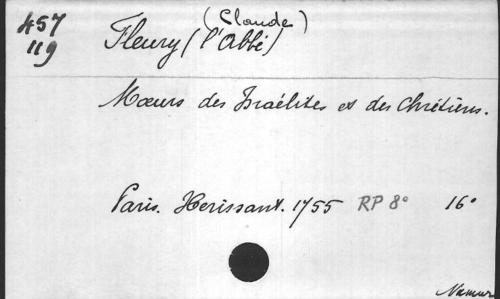 457 (Claude)
119 Fleury (l'Abbé)
Mœurs des Israélites et des Chrétiens.
Paris. Herissant. 1755 RP 8° 16°
Namur